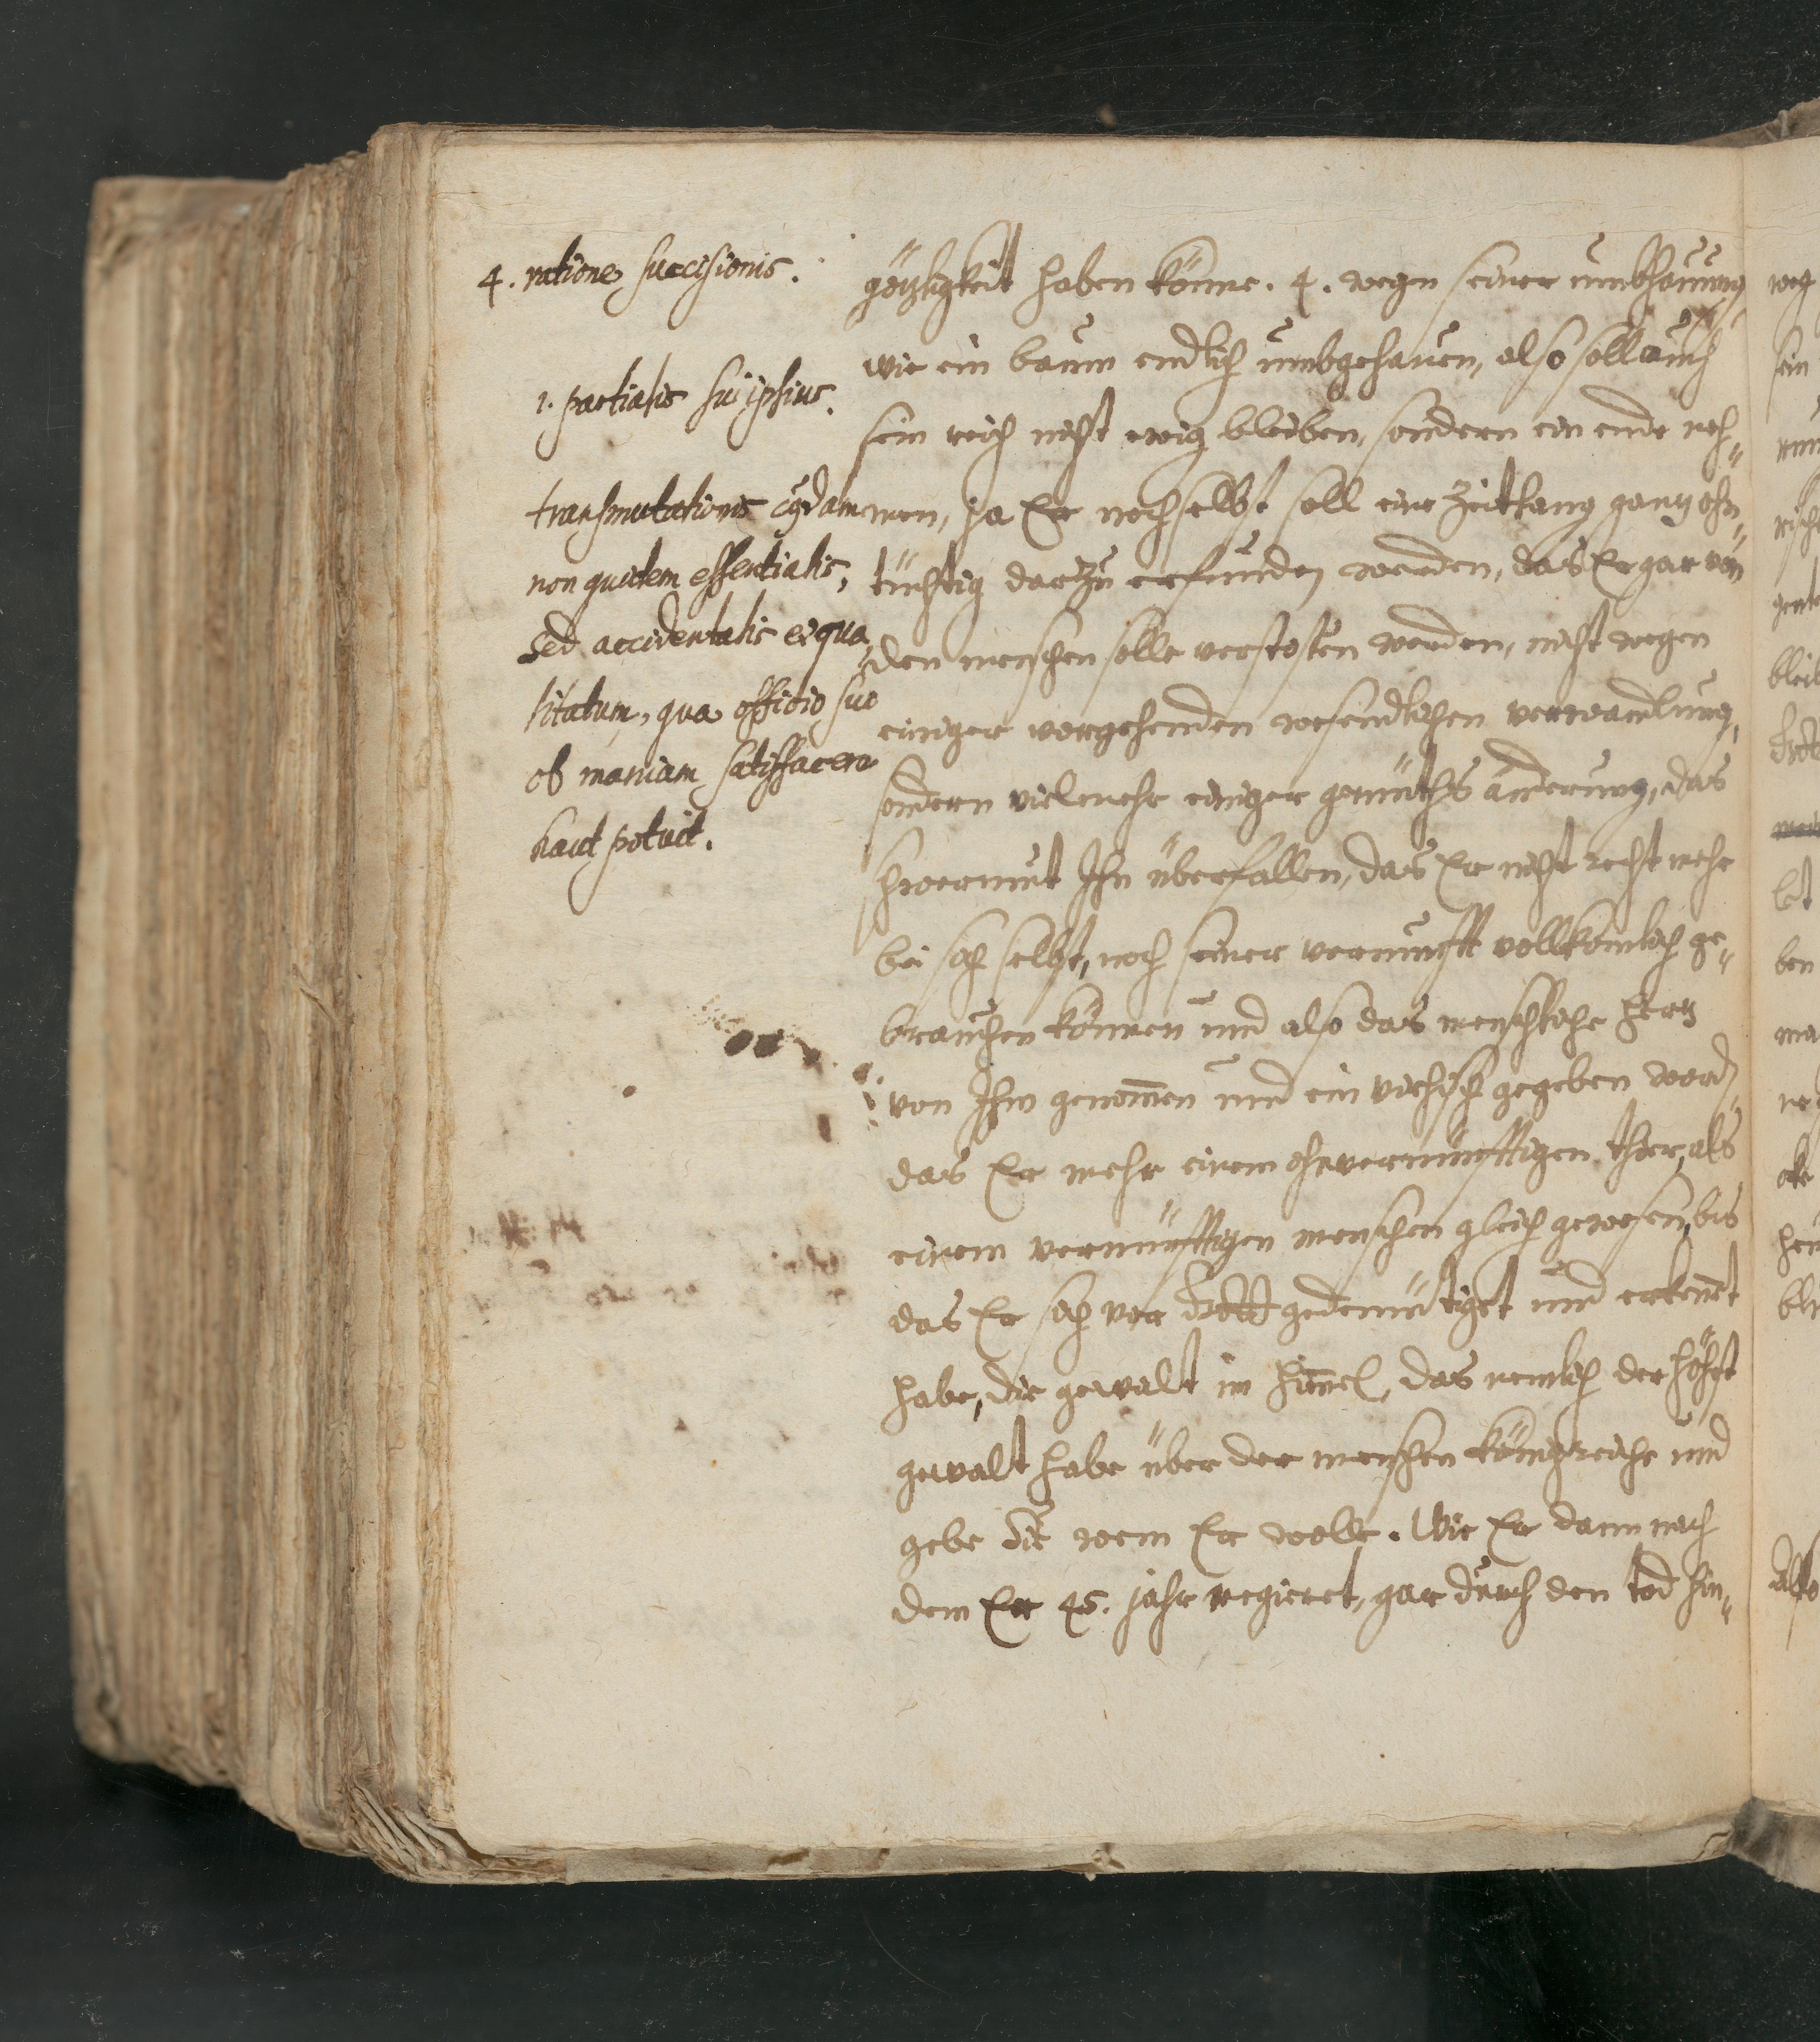 4. ratione succisionis.
1. partialis sui ipsius.
transmutationis cujusdam
non quidem essentialis,
sed accidentalis et qua¬
litatum, qua officio suo
ob maniam satisfacere
haut potuit.
götzligkeit haben könne. 4. wegen seiner umbhauung,
wie ein baum endlich umbgehauen, also soll auch
sein reich nicht ewig bleiben, sondern ein ende neh¬
men, ja Er noch selbst soll eine Zeitlang gantz ohn¬
tüchtig darzu erfunden werden, das Er gar von
den menschen solle verstosten werden, nicht wegen
einiger vorgehenden wesendlichen verwandlung,
sondern vielmehr einiger gemüths änderung, das
schwermut Ihn überfallen, das Er nicht recht mehr
bei sich selbst, noch seiner vernunfft vollkömlich ge¬
brauchen können und also das menschliche hertz
von Ihm genom̄en und ein viehisch gegeben word,
das Er mehr einem ohnvernünfftigen thier, als
einem vernünfftigen menschen gleich gewesen, bis
das Er sich vor Gott gedemütiget und erkent
habe, die gewalt im Him̄el, das nemlich der höhst
gewalt habe über der menschen königreiche und
gebe die wem Er wolle. Wie Er dann nach
dem Er 45. jahr regieret, gar durch den tod hin¬
weg
sein
blei
ben
Also